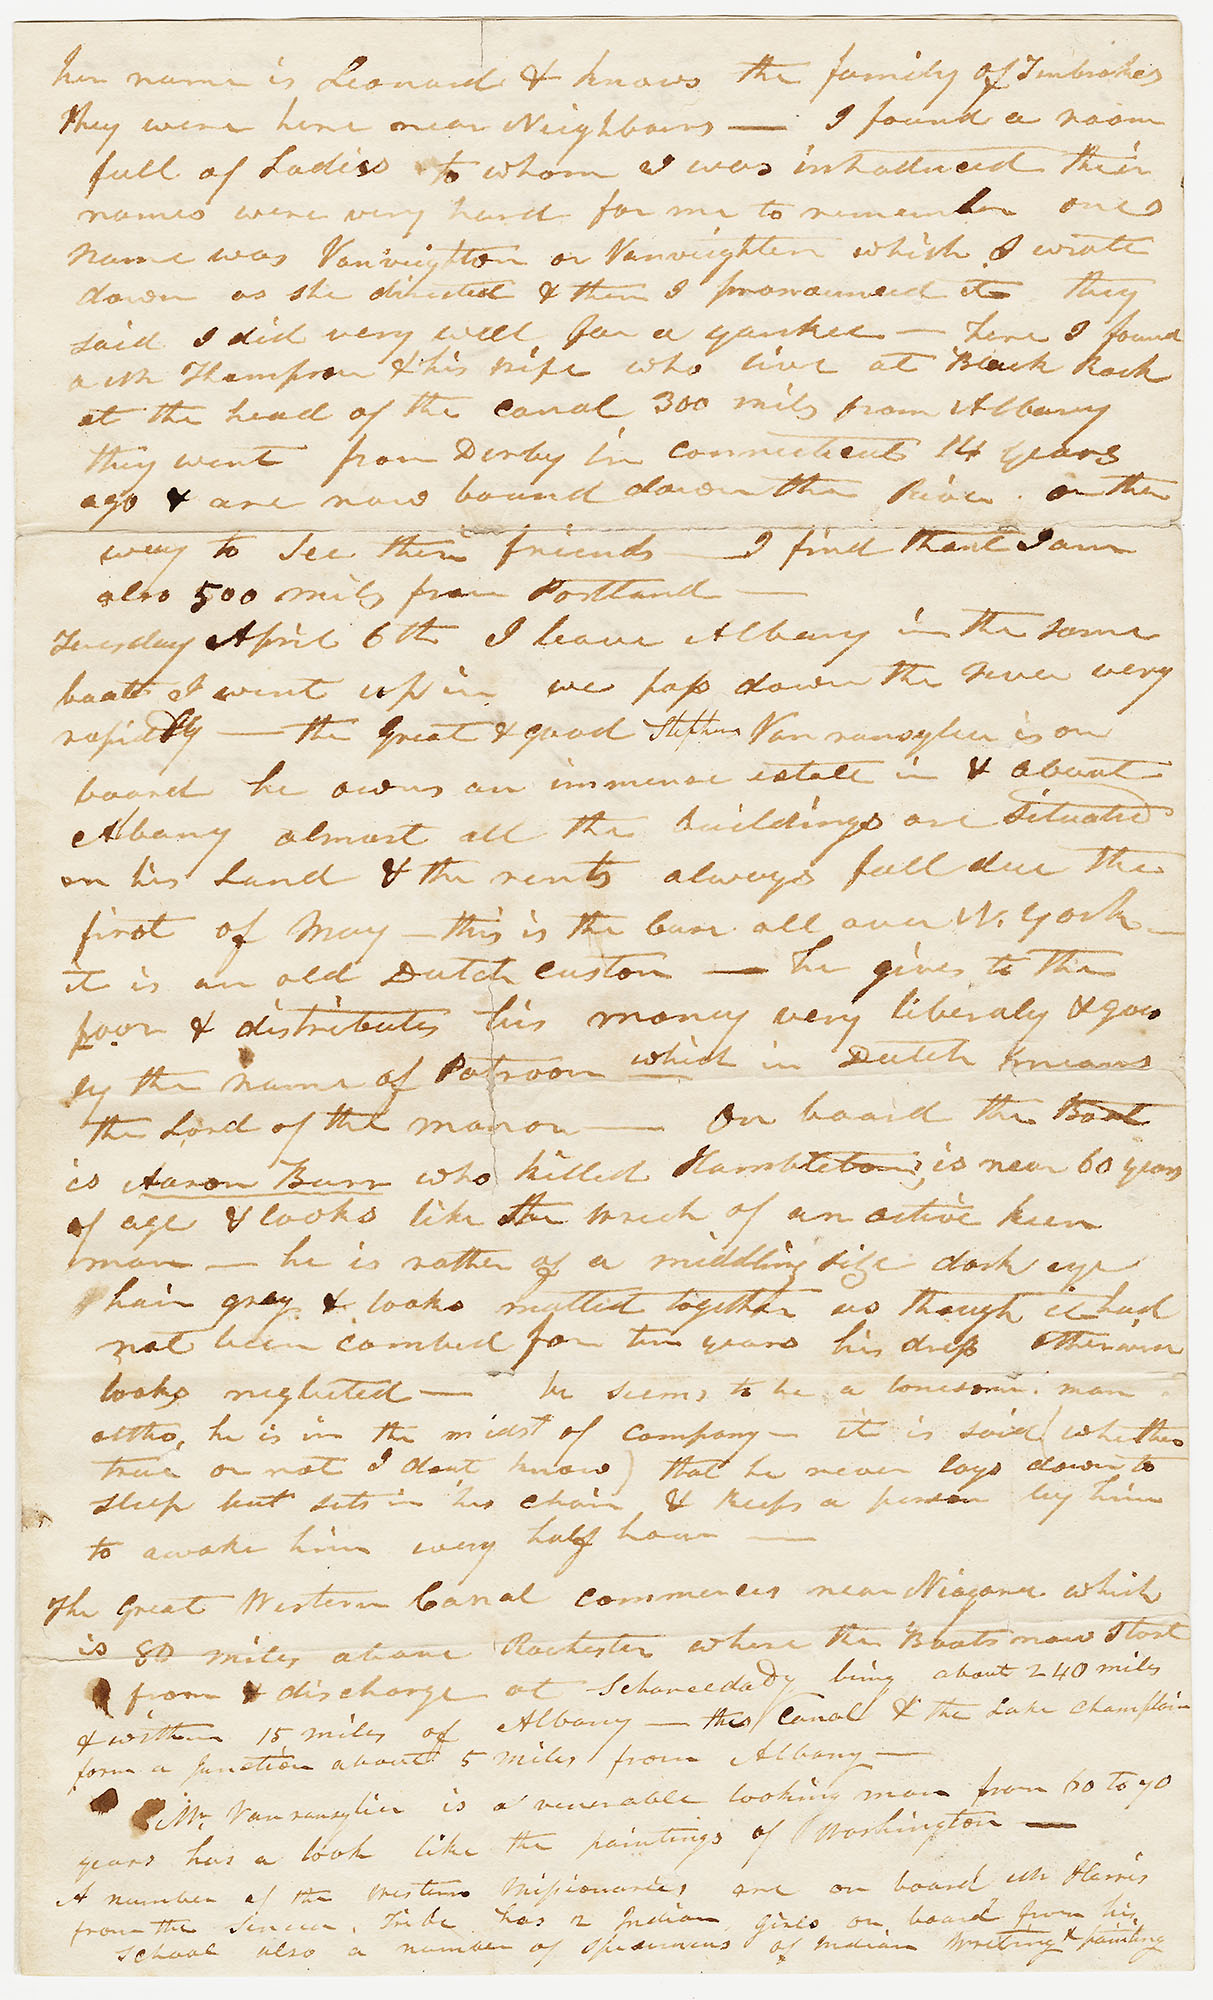 her name is Leonard & knows the family of Timbrokes
they were here near Neighbours — I found a room
full of Ladies to whom I was introduced their
names were very hard for me to remember one's
name was Vanveighton or Vanveighten which I wrote
down as she directed & then I pronounced it they
said I did very well for a yankee — here I found
a Mr Thompson & his wife who live at Black Rock
at the head of the canal 300 mils from Albany
they went from Derby in Connecticut 14 years
ago & are now bound down the River on their
way to See their friends — I find that I am
also 500 mils from Portland —
Tuesday April 6th I leave Albany in the same
boat I went up in we pass down the river very
rapidly — the great & good Stephen Van ransylier is on
board he owns an immense estate in & about
Albany almost all the buildings are situated
on his Land & the rents always fall due the
first of May — this is the Case all over N. York —
it is an old Dutch custom — he gives to the
poor & distributes his money very liberaly & goes
by the name of Patroon which in Dutch means
the Lord of the manor — On board the Boat
is Aaron Burr who killed Hambleton, is near 60 years
of age & looks like the wreck of an active keen
man — he is rather of a middling size dark eye
hair gray & looks matted together as though it had
not been combed for ten years his dress otherwise
looks neglected — he seems to be a lonesome man
altho, he is in the midst of company — it is said (whether
true or not I dont know) that he never lays down to
sleep but sets in his chair & keeps a person by him
to awake him every half hour —
The Great Western Canal commences near Niagara which
is 80 miles above Rochester where the Boats now Start
from & discharge at Schanecdady being about 240 miles
& within 15 miles of Albany — this Canal & the Lake Champlain
form a junction about 5 miles from Albany —
Mr. Van ransylier is a venerable looking man from 60 to 70
years has a look like the paintings of Washington —
A number of the western Missionaries are on board Mr Harris
from the Seneca Tribe has 2 Indian girls on board from his
School also a number of specimens of Indian Writing & painting